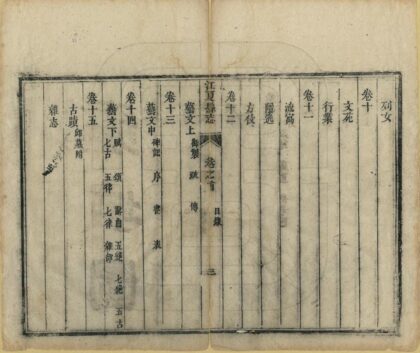 列女
卷十
文苑
行業
卷十一
流寓
隱逸
方伎
卷十二
江夏縣志 卷之首 目錄 三
藝文上 御製 疏 傳
卷十三
藝文中 碑記 序 書 表
卷十四
藝文下 賦 頌 五絕 七絕 五古
七古 五律 七律
卷十五
古蹟 邱墓附
雜志